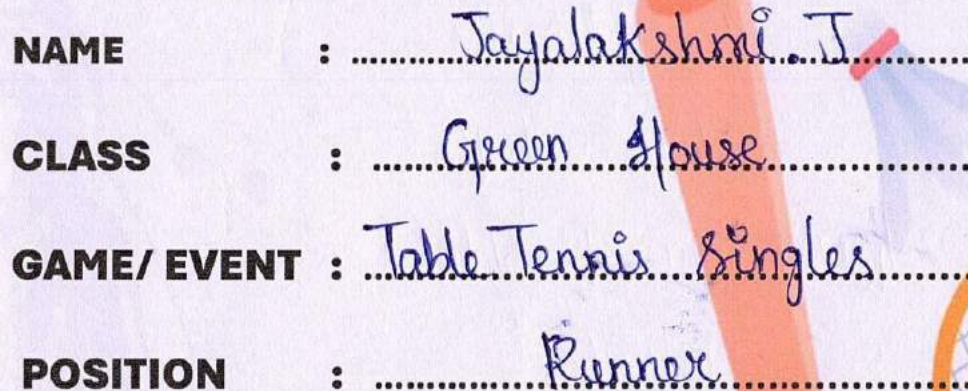 NAME : Jayalakshmi. J
CLASS : Green House
GAME/ EVENT : Table Tennis Singles
POSITION : Runner